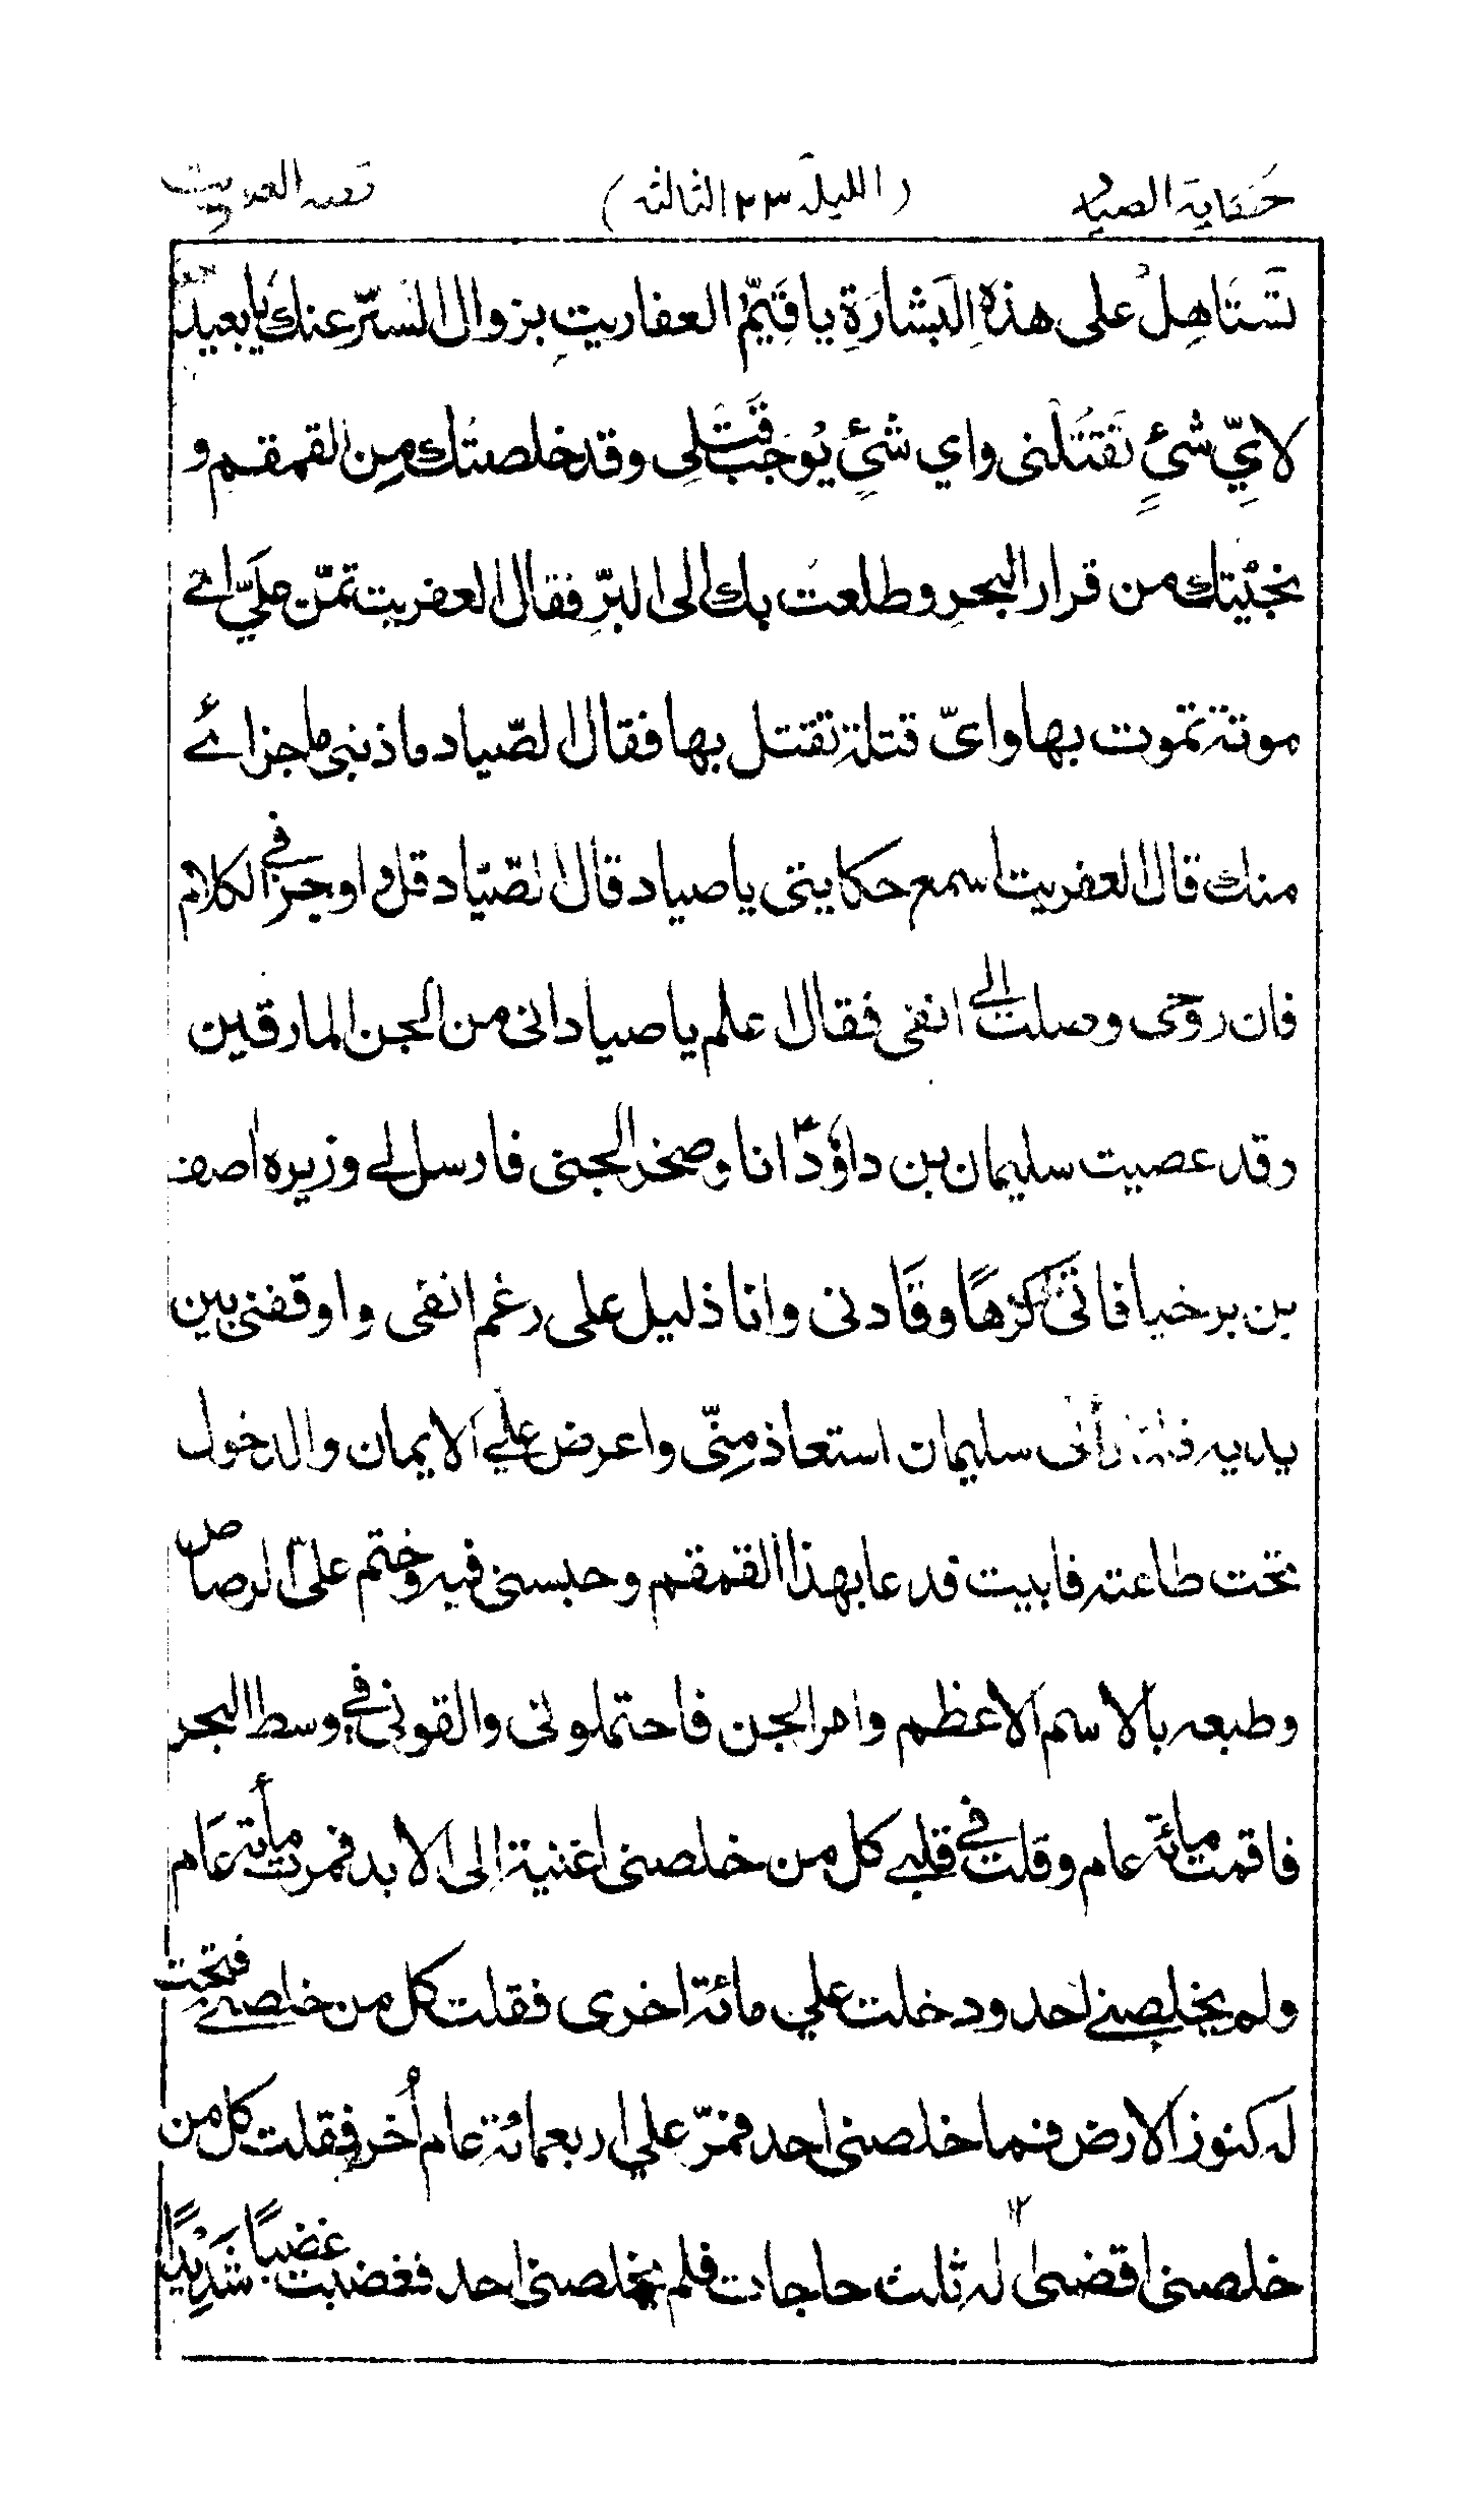 حكاية الصياد (الليلة ٣ الثالثة) قصة العفريت
تَستَاهِلُ على هذهِ البَشارَةِ يا قَيِّمَ العفاريتِ بزوال السّترِ عنكَ يا بعيدُ
لايِّ شئٍ تَقتُلَنى واي شئٍ يُوجَب قَتَلِى وقد خلصتُك مِن القمقمِ و
نجيْتك من قرار البحرِ وطلعتَ بك الى البَرِّ فقال العفريت تمنّ علَيّ اے
موتة تموت بها وايّ قتلة تقتل بها فقال الصّياد ما ذنبى ما جزائے
منك قال العفريت اسمع حكايتى يا صياد قال الصّيّاد قل و اوجز في الكلام
فان روحى وصلت الے انفى فقال اعلم يا صياد انى من الجن المارقين
وقد عصيت سليمان بن داؤدؑ انا وصخر الجنى فارسل الے وزيره اصف
بن برخيا فاتَى كَرْهًا وقَادنى وانا ذليل على رغم انفى واوقفنى بين
يديه رأنى سليمان استعاذ مِنّى واعرض علي الايمان والدخول
تحت طاعته فابيت فدعا بهذا القمقم وحبسنى فيه وختم علىّ الرصاص
وطبعه بالاسم الاعظم وامر الجن فاحتملونى والقونى في وسط البحر
فاقمت مائة عام وقلت في قلبے كل من خلصنى اغنية الى الابد فمرت مأئة عَام
ولم يخلصنے احد ودخلت علي مائة اخرى فقلت كل من خلصنے فتحت
له كنوز الارض فما خلصنى احد فمرّ علي اربعمائة عام اُخر فقلت كل من
خلصنى اقضى له ثلث حاجات فلم يخلصنى احد فغضبت غضبًا شَدِيْدًا